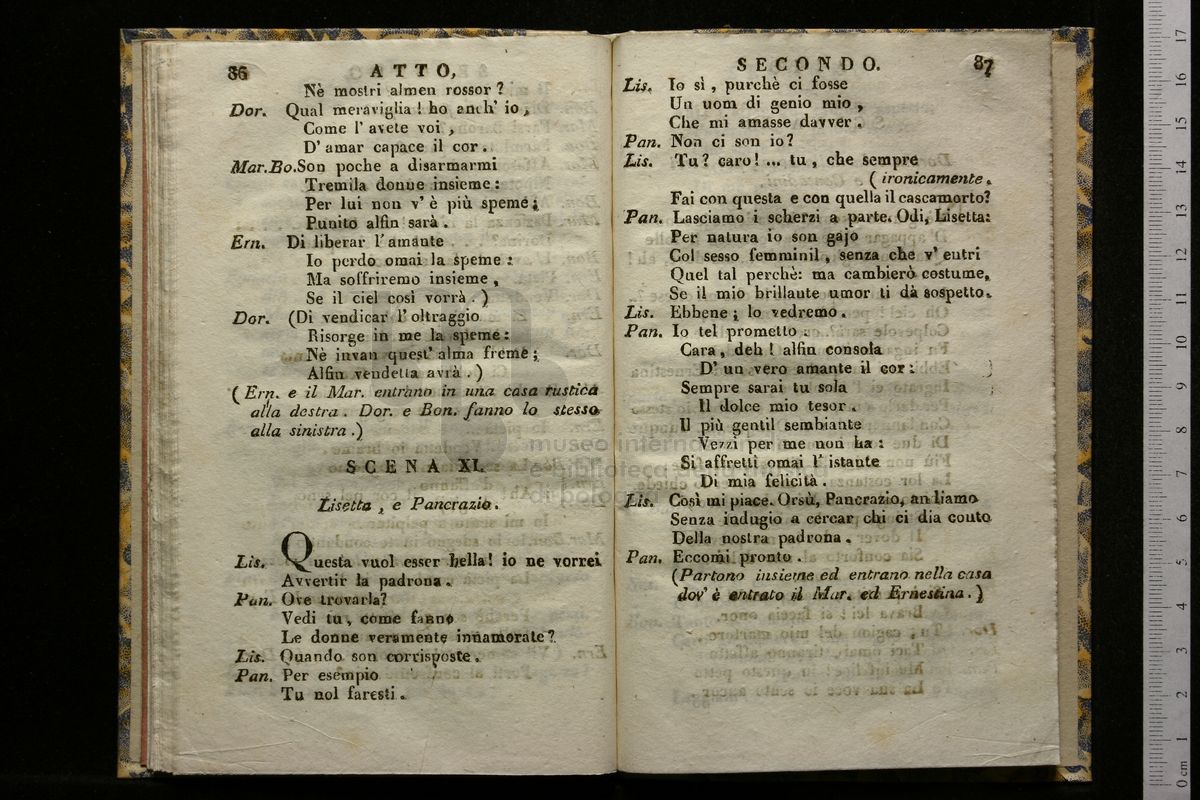 36
ATTO,
Nè mostri almen rossor?
Dor. Qual meraviglia! ho anch' io,
Come l' avete voi,
D' amar capace il cor.
Mar.Bo.Son poche a disarmarmi
Tremila donne insieme:
Per lui non v' è più speme;
Punito alfin sarà.
Ern. Di liberar l' amante
Io perdo omai la speme:
Ma soffriremo insieme,
Se il ciel così vorrà.)
Dor. (Di vendicar l' oltraggio
Risorge in me la speme:
Nè invan quest' alma freme;
Alfin vendetta avrà.)
(Ern. e il Mar. entrano in una casa rustica
alla destra. Dor. e Bon. fanno lo stesso
alla sinistra.)
SCENA XI.
Lisetta, e Pancrazio.
Lis. Questa vuol esser bella! io ne vorrei
Avvertir la padrona.
Pan. Ove trovarla?
Vedi tu, come fanno
Le donne veramente innamorate?
Lis. Quando son corrisposte.
Pan. Per esempio
Tu nol faresti.
SECONDO.
37
Lis. Io sì, purchè ci fosse
Un uom di genio mio,
Che mi amasse davver.
Pan. Non ci son io?
Lis. Tu? caro! ... tu, che sempre
(ironicamente.
Fai con questa e con quella il cascamorto?
Pan. Lasciamo i scherzi a parte. Odi, Lisetta:
Per natura io son gajo
Col sesso femminil, senza che v' entri
Quel tal perchè: ma cambierò costume,
Se il mio brillante umor ti dà sospetto.
Lis. Ebbene; lo vedremo.
Pan. Io tel prometto.
Cara, deh! alfin consola
D' un vero amante il cor:
Sempre sarai tu sola
Il dolce mio tesor.
Il più gentil sembiante
Vezzi per me non ha:
Si affretti omai l' istante
Di mia felicità.
Lis. Così mi piace. Orsù, Pancrazio, andiamo
Senza indugio a cercar chi ci dia conto
Della nostra padrona.
Pan. Eccomi pronto.
(Partono insieme ed entrano nella casa
dov' è entrato il Mar. ed Ernestina.)